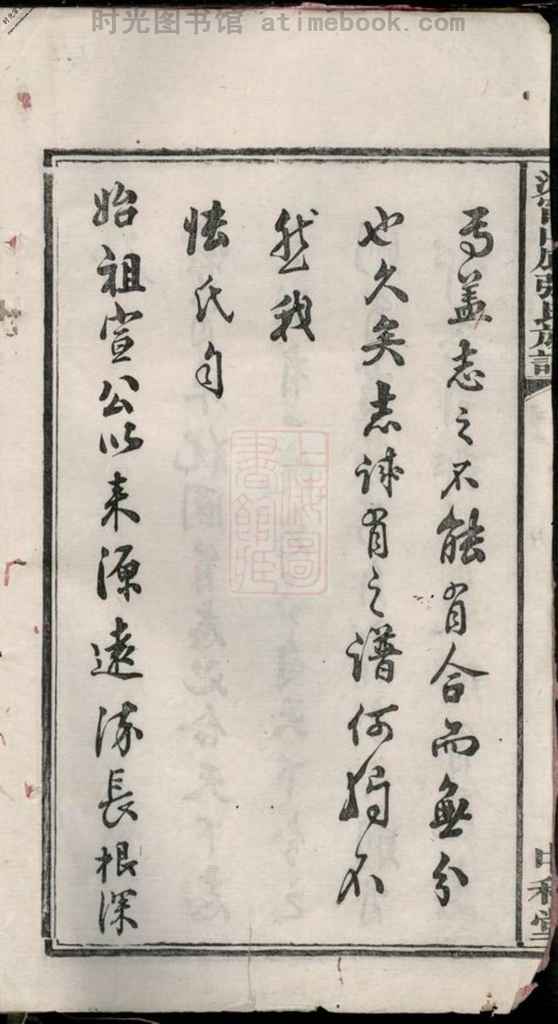 时光图书馆 atimebook.com
焉盖志之不能有合而無分
也久矣志誠有之譜何獨不
然我
張氏自
始祖宣公以来源遠流長根深
張氏族譜
中和堂